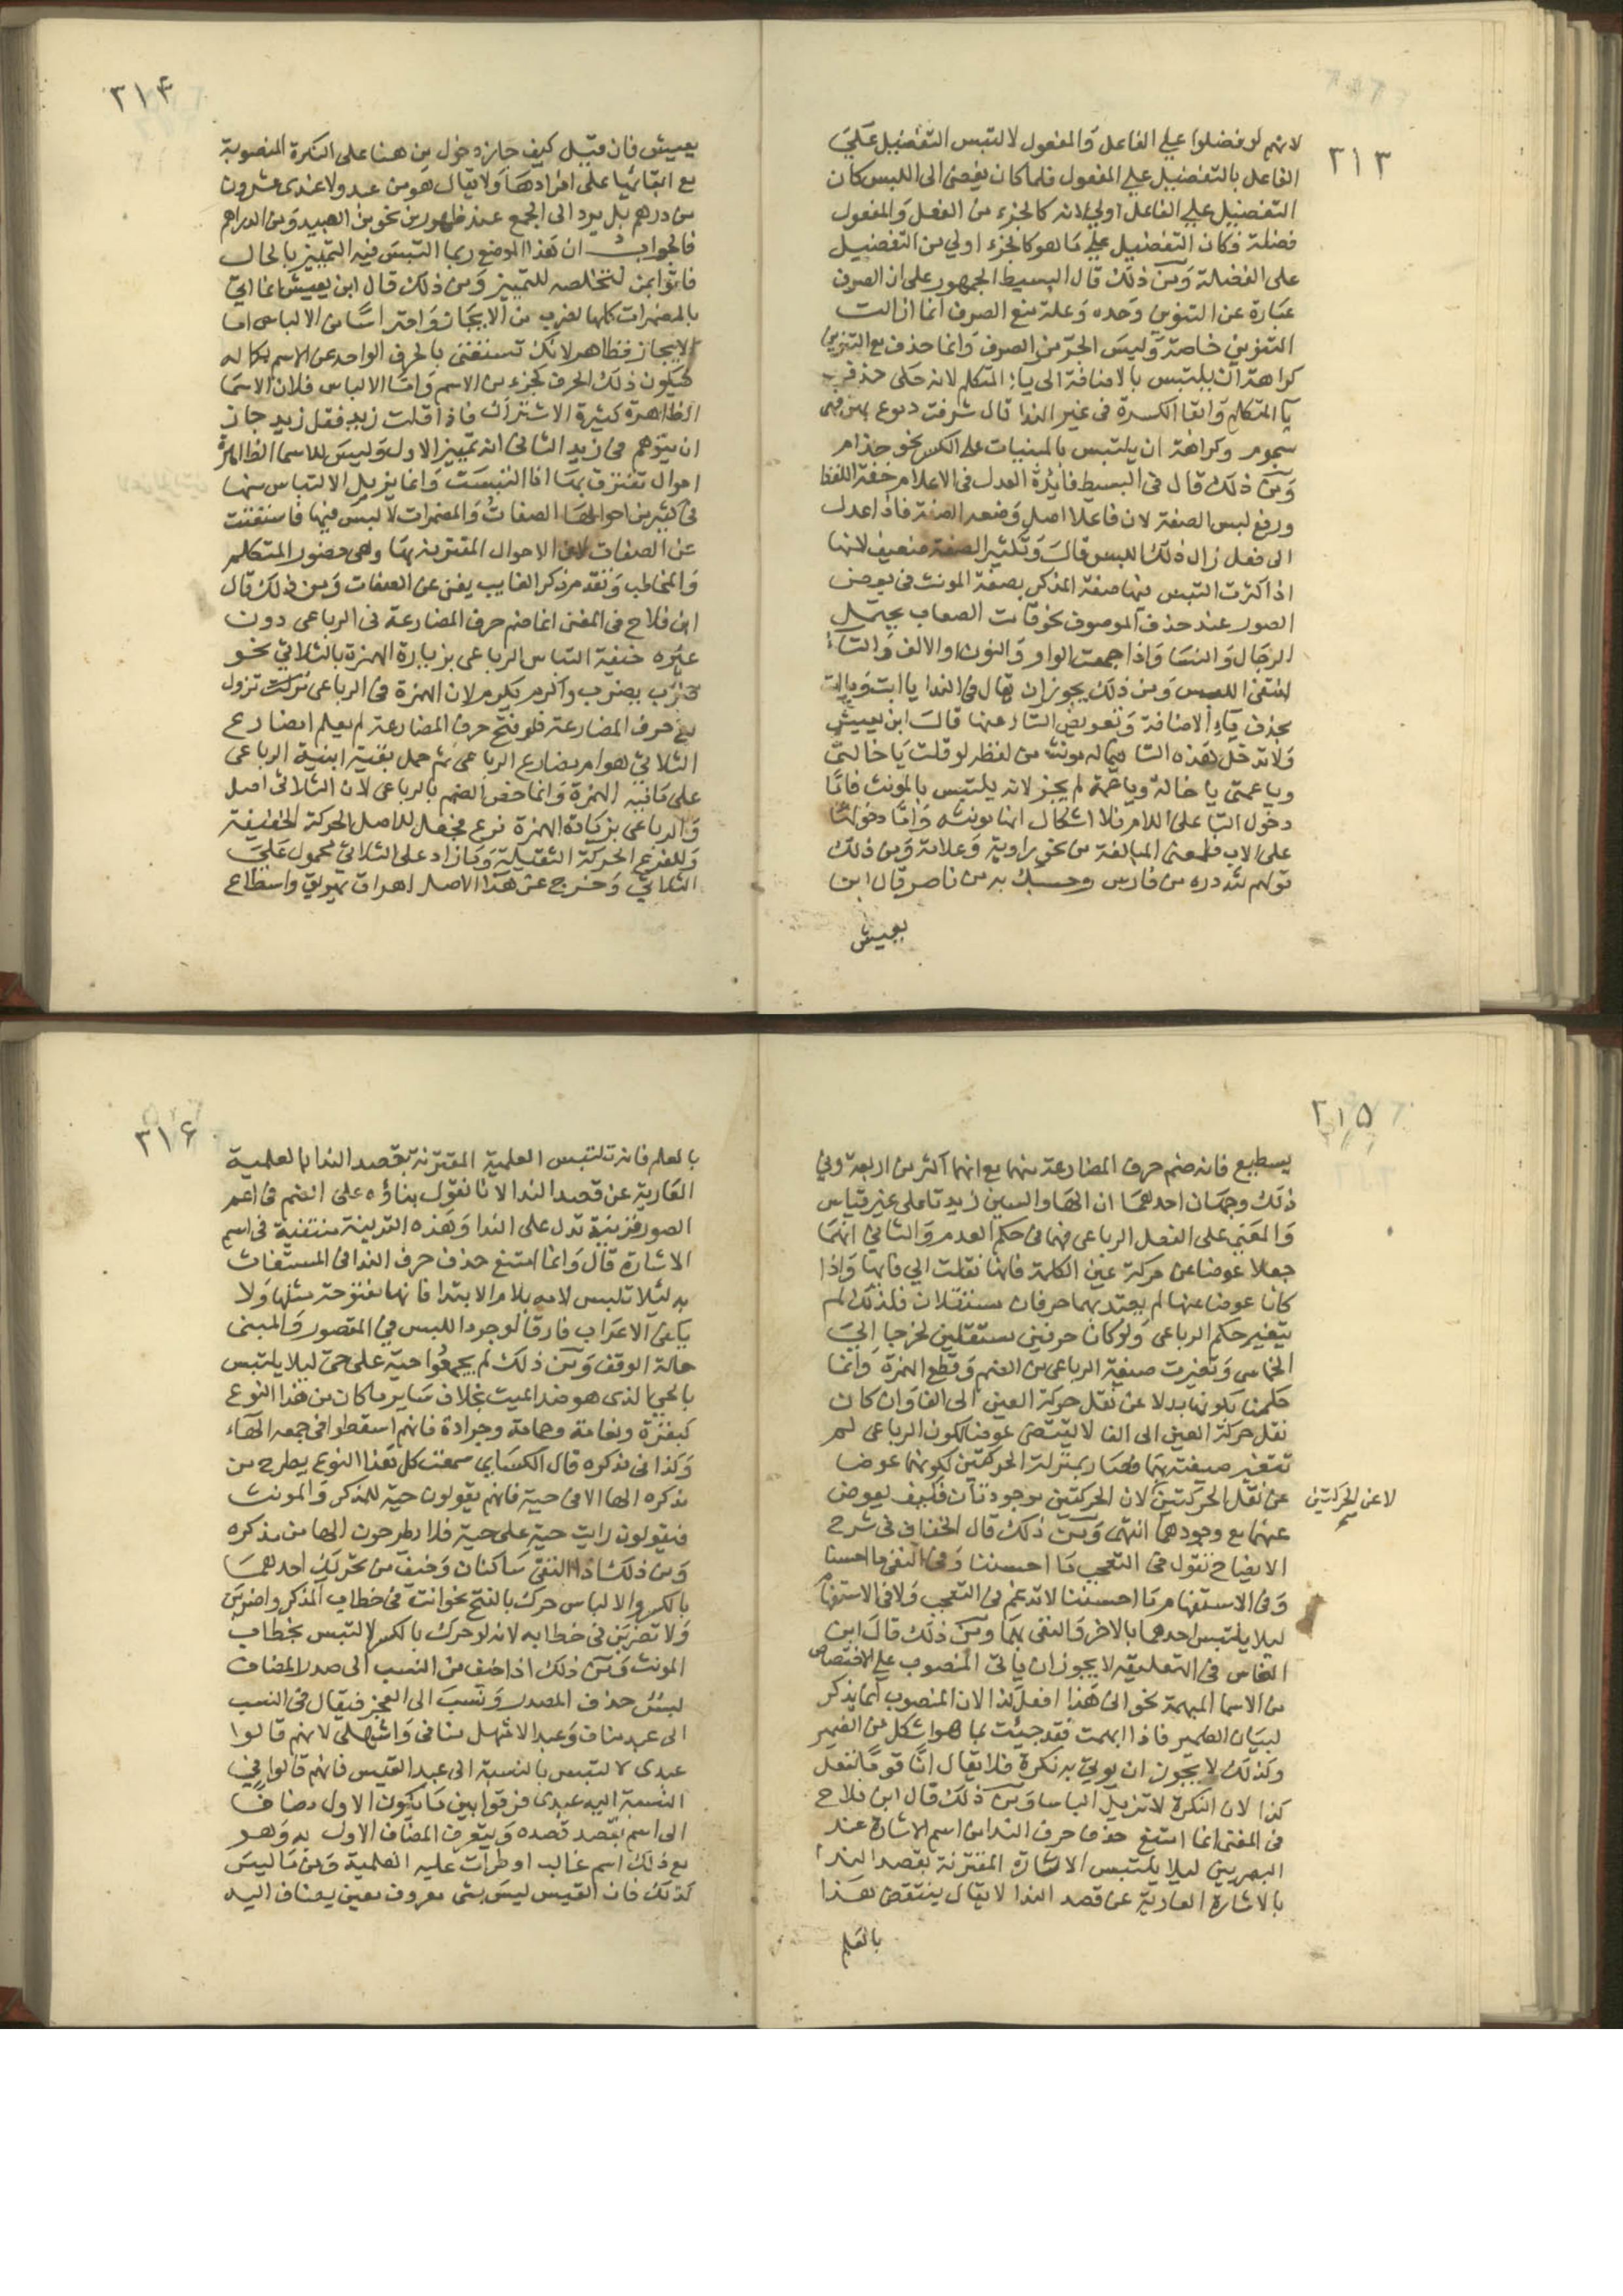 ٣١٣
لانهم لو فضلوا علي الفاعل والمفعول لالتبس التفضيل علي
الفاعل بالتفضيل علي المفعول فلما كان يفضي الى اللبس كان
التفضيل علي الفاعل اولي لانه كالجزء من الفعل والمفعول
فضلة فكان التفضيل علي ما هو كالجزء اولي من التفضيل
على الفضلة ومن ذلك قال البسيط الجمهور على ان الصرف
عبارة عن التنوين وحده وعلة منع الصرف انما ازالت
التنوين خاصة وليس الجر من الصرف وانما حذف مع التنوين
كراهة ان يلتبس بالاضافة الى ياء المتكلم لانه حكى حذف
يا المتكلم وابقا الكسرة في غير الندا قال شرفت دموع بهن فهى
سجوم وكراهة ان يلتبس بالمبنيات على الكسر نحو حذام
ومن ذلك قال في البسيط فائدة العدل في الاعلام خفة اللفظ
ورفع لبس الصفة لان فاعلا اصل وضعه الصفة فاذا عدل
الى فعل زال ذلك اللبس وقال وتكثير الصفة ضعيف لانها
اذا كثرت التبس فيها صفة المذكر بصفة المونث في بعض
الصور عند حذف الموصوف نحو قامت الصعاب يحتمل
الرجال والنسا واذا جمعت الواو والنون او الالف والتاء
انتفى اللبس ومن ذلك يجوز ان يقال في الندا يا ابت ويا امت
بحذف ياء الاضافة وتعويض التا عنها قال ابن يعيش
ولا تدخل هذه التا فيما له مونث من لفظه لو قلت يا خالتى
ويا عمتى يا خالة ويا عمة لم يجز لانه يلتبس بالمونث فاما
دخول التا على الام فلا اشكال انها مونثه واما دخولها
على الاب فلمعنى المبالغة من نحو راوية وعلامة ومن ذلك
قولهم لله دره من فارس وحسبك به من ناصر قال ابن
يعيش
٣١٤
يعيش فان قيل كيف جاز دخول من هنا على النكرة المنصوبة
مع ابقائها على افرادها ولا يقال هو من عبد ولا عندى عشرون
من درهم بل يرد الى الجمع عند ظهور من نحو من العبيد ومن الدراهم
فالجواب ان هذا الموضع ربما التبس فيه التمييز بالحال
فاتوا بمن لتخلصه للتمييز ومن ذلك قال ابن يعيش انما اتي
بالمضمرات كلها لضرب من الايجاز واحتراسا من الالباس اما
الايجاز فظاهر لانك تستغني بالحرف الواحد عن الاسم بكماله
فيكون ذلك الحرف كجزء من الاسم واما الالباس فلان الاسما
الظاهرة كثيرة الاشتراك فاذا قلت زيد فعل زيد جاز
ان يتوهم في زيد الثاني انه غير الاول وليس للاسما الظاهرة
احوال تفترق بها اذا التبست وانما يزيل الالتباس منها
في كثير من احوالها الصفات والمضمرات لا لبس فيها فاستغنت
عن الصفات لان الاحوال المقترنة بها وهى حضور المتكلم
والمخاطب وتقدم ذكر الغايب يغنى عن الصفات ومن ذلك قال
ابن فلاح في المغنى انما ضم حرف المضارعة في الرباعى دون
غيره خيفة التباس الرباعى بزيادة الهمزة بالثلاثي نحو
ضرب يضرب واكرم يكرم لان الهمزة في الرباعى تزول
مع حرف المضارعة فلو فتح حرف المضارعة لم يعلم امضارع
الثلاثي هو ام مضارع الرباعى ثم حمل بقية ابنية الرباعى
على ما فيه الهمزة وانما خص الضم بالرباعى لان الثلاثى اصل
والرباعى بزيادة الهمزة فرع فجعل للاصل الحركة الخفيفة
وللفرع الحركة الثقيلة وما زاد على الثلاثي محمول علي
الثلاثي وخرج عن هذا الاصل اهراق يهريق واسطاع
٣١٥
يسطيع فانه ضم حرف المضارعة منهما مع انهما اكثر من اربعة وفي
ذلك وجهان احدهما ان الها والسين زيدتا على غير قياس
والمعنى على الفعل الرباعى فهما في حكم العدم والثاني انهما
جعلا عوضا عن حركة عين الكلمة فانها نقلت الي فائها واذا
كانا عوضا عنها لم يعتد بهما حرفان مستقلان فلذلك لم
يتغير حكم الرباعى ولو كانا حرفين مستقلين لخرجا الي
الخماسى وتغيرت صيغة الرباعى من الضم وقطع الهمزة وانما
حكمنا بكونها بدلا عن نقل حركة العين الى الفا وان كان
نقل حركة العين الى الفا لا يقتضى عوضا لكون الرباعى لم
تتغير صيغته بهما فصار بمنزلة الحركتين لكونهما عوضا
عن نقل الحركتين لان الحركتين موجودتان فكيف يعوض
لا عن الحركتين
عنهما مع وجودهما انتهى ومن ذلك قال الخفاف في شرح
الايضاح نقول في التعجب ما احسننا وفي النفى ما احسنا
وفي الاستفهام ما احسننا لا تدغم في التعجب ولا في الاستفهام
ليلا يلتبس احدهما بالاخر والنفى بهما ومن ذلك قال ابن
النحاس في التعليقه لا يجوز ان ياتي المنصوب على الاختصاص
من الاسما المبهمة نحو انى هذا افعل كذا لان المنصوب انما يذكر
لبيان الضمير فاذا ابهمت فقد جيئت بما هو اشكل من الضمير
وكذلك لا يجوز ان يوتي به نكرة فلا يقال انا قوما نفعل
كذا لان النكرة لا تزيل لبسا ومن ذلك قال ابن فلاح
في المغنى انما امتنع حذف حرف الندا من اسم الاشارة عند
البصريين ليلا يلتبس الاشارة المقترنة بقصد الندا
بالاشارة العارية عن قصد الندا لا يقال ينتقض هذا
بالعلم
٣١٦
بالعلم فانه تلتبس العلمية المقترنة بقصد الندا بالعلمية
العارية عن قصد الندا لانا نقول بناؤه على الضم في اعم
الصور قرينة تدل على الندا وهذه القرينة منتفية في اسم
الاشارة قال وانما امتنع حذف حرف الندا في المستغاث
به لئلا تلبس لامه بلام الابتدا فانها مفتوحة مثلها ولا
يكفي الاعراب فارقا لوجود اللبس في المقصور والمبنى
حالة الوقف ومن ذلك لم يجمعوا حية على حى ليلا يلتبس
بالحي الذى هو ضد الميت بخلاف ساير ما كان من هذا النوع
كبقرة ونعامة وحمامة وجرادة فانهم اسقطوا في جمعه الهاء
وكذا في مذكره قال الكساى سمعت كل هذا النوع يطرح من
مذكره الها الا في حية فانهم يقولون حية للمذكر والمونث
فيقولون رايت حية على حية فلا يطرحون الها من مذكره
ومن ذلك اذا التقى ساكنان وخيف من تحريك احدهما
بالكسر الالباس حرك بالفتح نحو انت في خطاب المذكر واضربن
ولا تضربن في خطابه لانه لو حرك بالكسر لالتبس بخطاب
المونث ومن ذلك اذا خيف من النسب الى صدر المضاف
لبس حذف المصدر ونسب الى العجز فيقال في النسب
الى عبد مناف وعبد الاشهل منافى واشهلى لانهم قالوا
عبدى لالتبس بالنسبة الى عبد القيس فانهم قالوا في
النسبة اليه عبدى فرقوا بين ما يكون الاول مضافا
الى اسم يقصد قصده ويتعرف المضاف الاول به وهو
مع ذلك اسم غالب او طرات عليه العلمية وبين ما ليس
كذلك فان القيس ليس بشى معروف معين يضاف اليه